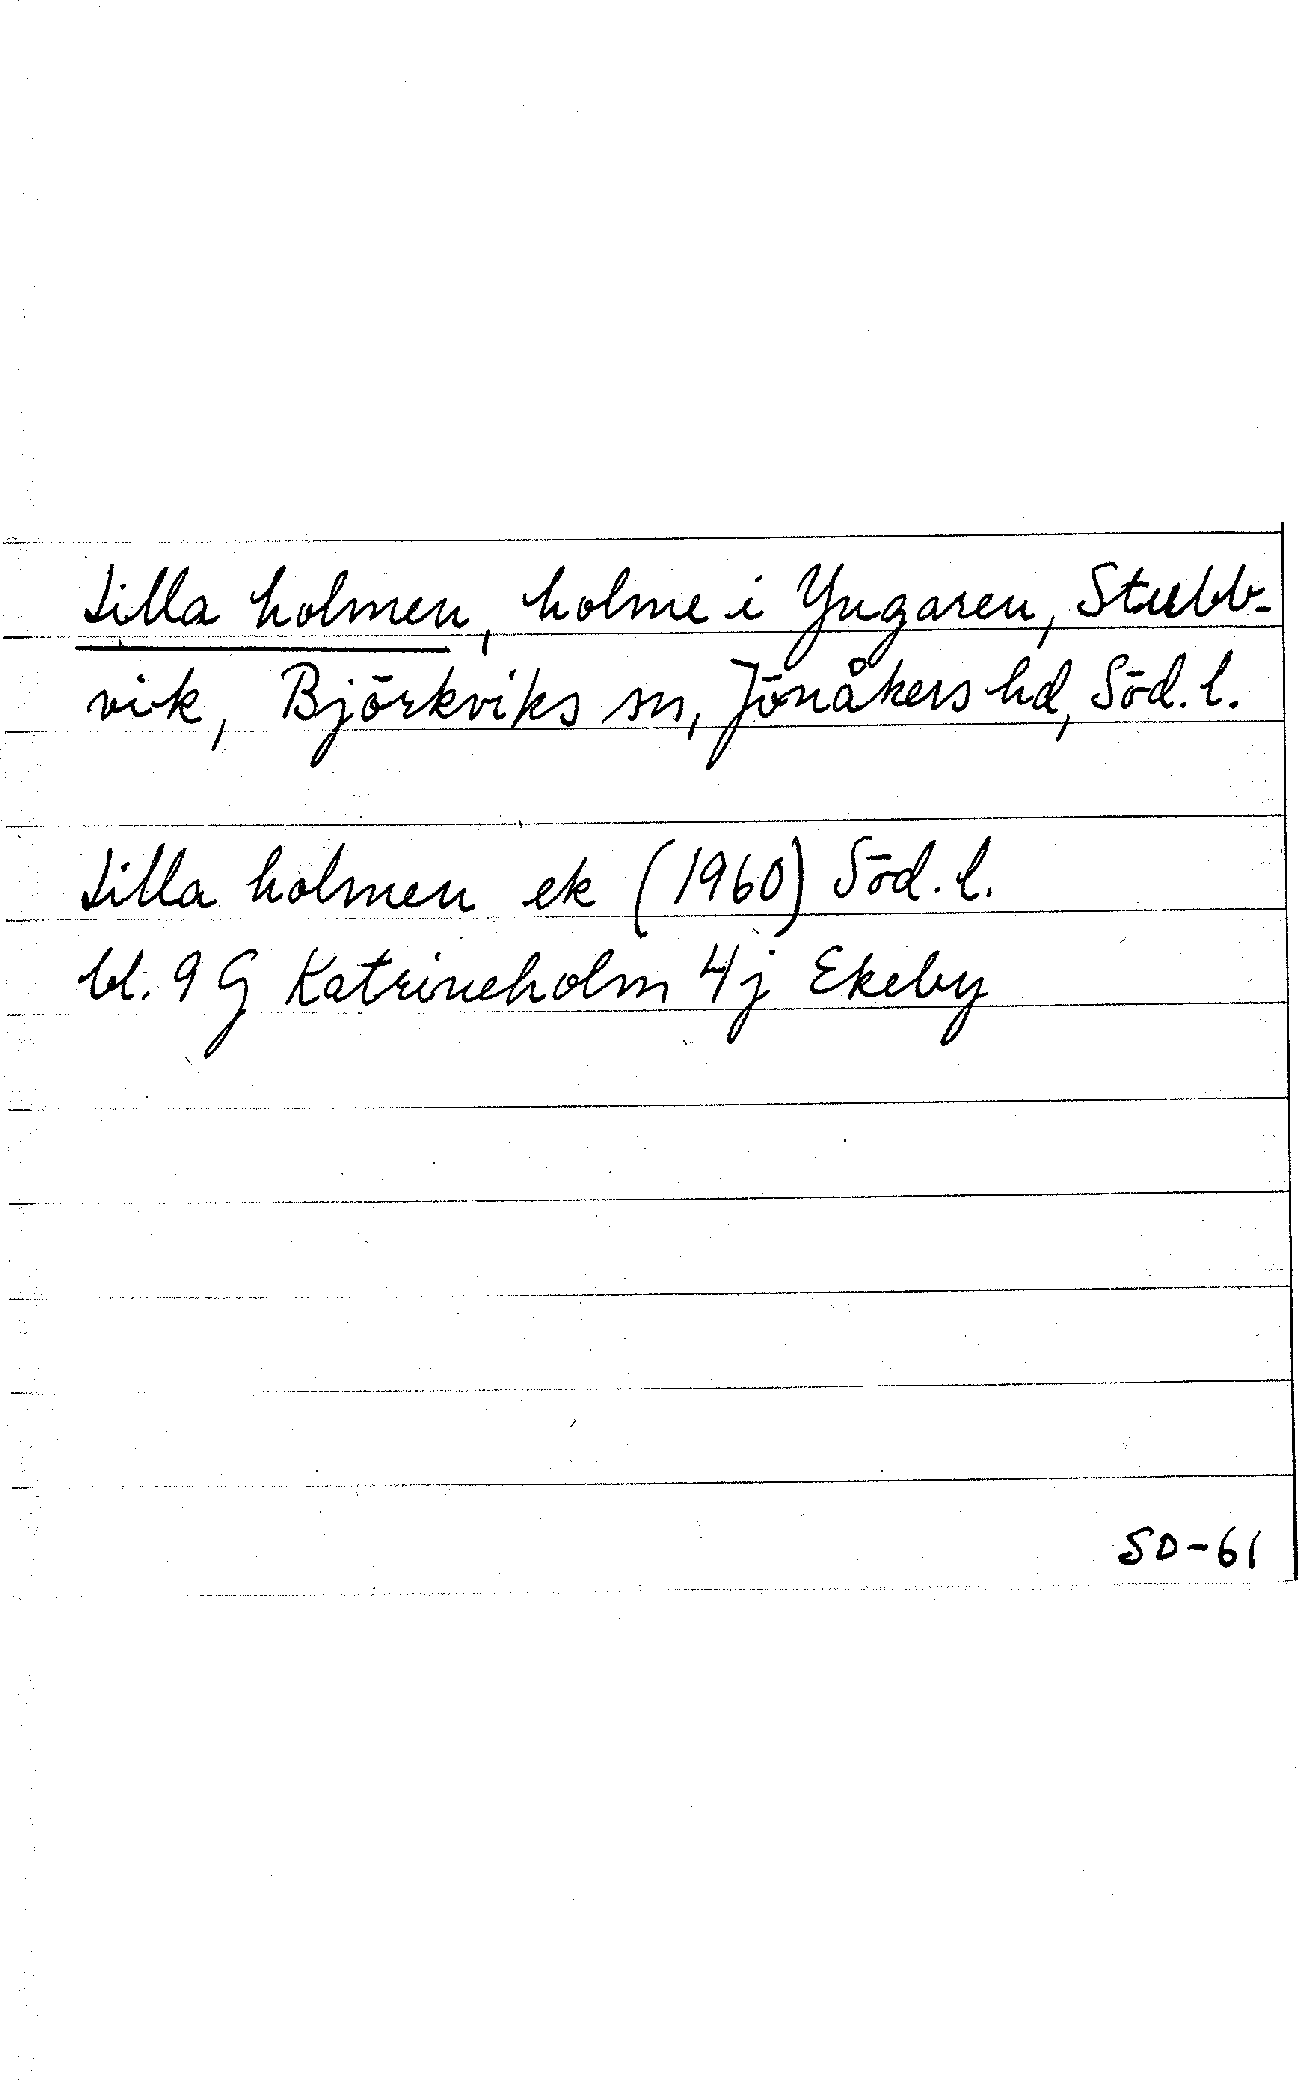 Lilla holmen, holme i Yngaren, Stubb-
vik, Björkviks sn, Jönåkers hd, Söd. l.
Lilla holmen ek (1960) Söd. l.
bl. 9 G Katrineholm 4j Ekeby
SD-61